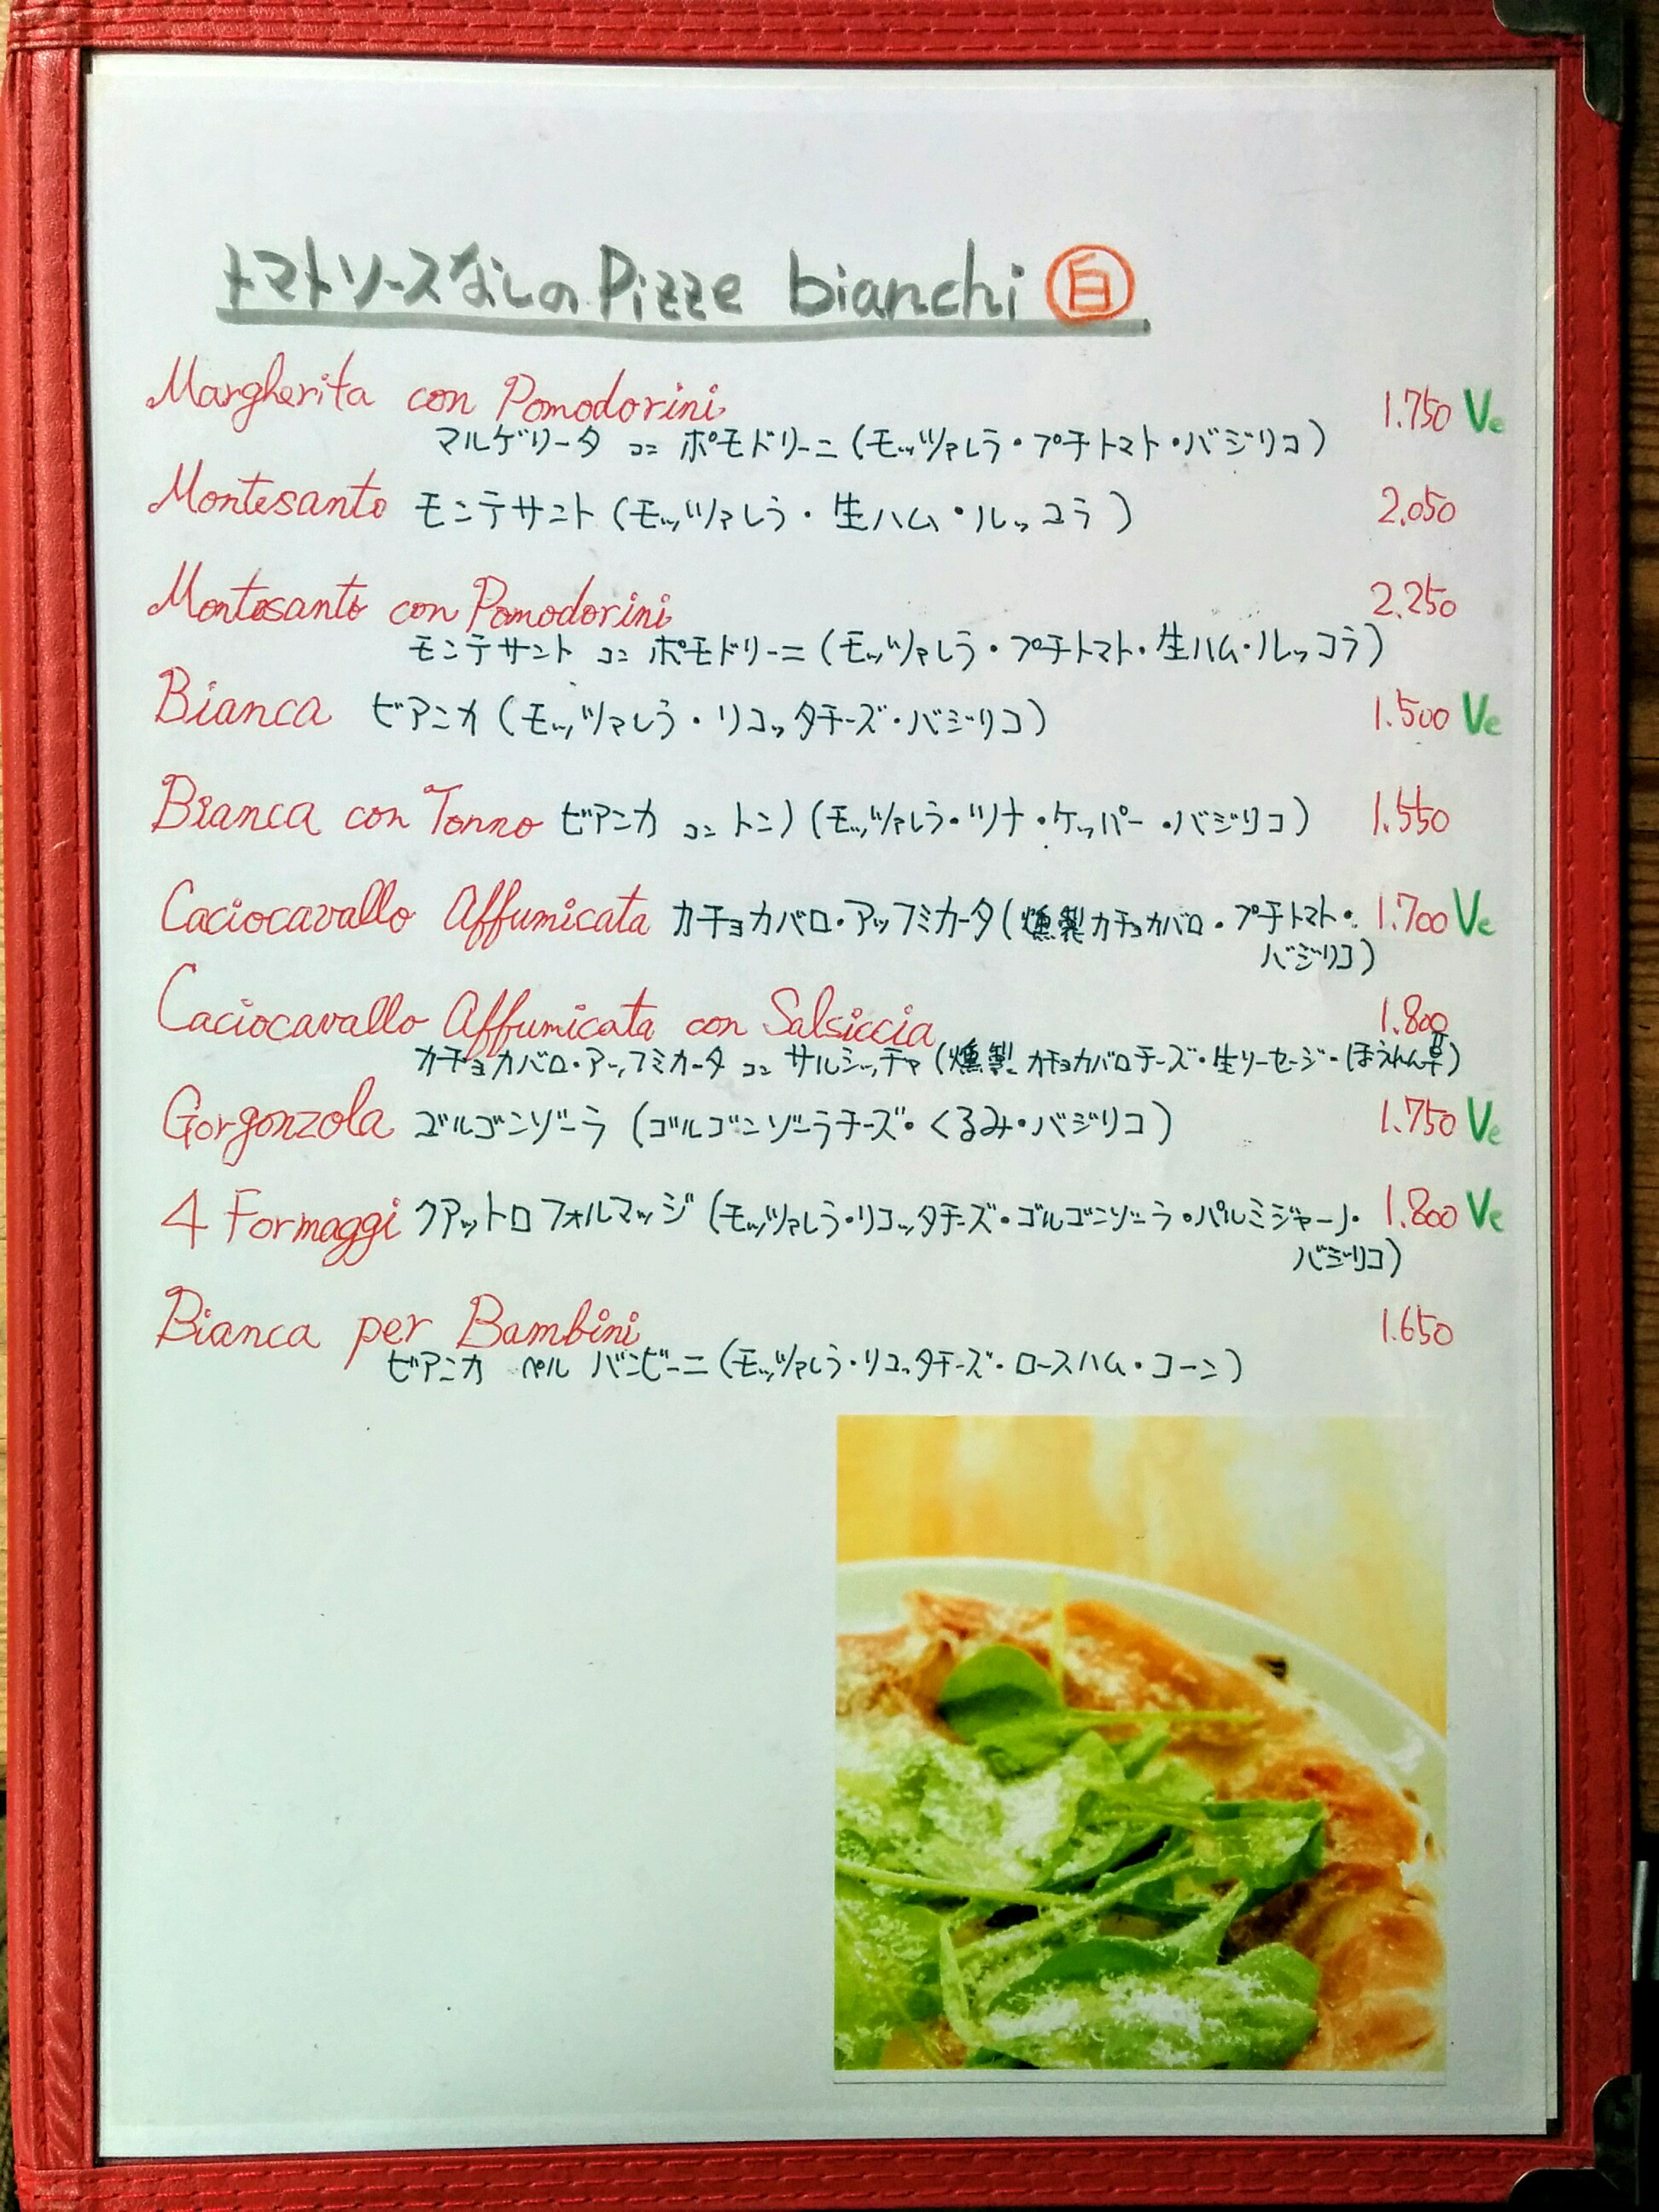 トマトソースなしの Pizze bianchi 白
Margherita con Pomodorini 1.750 Ve
マルゲリータ コン ポモドリーニ (モッツァレラ・プチトマト・バジリコ)
Montesanto モンテサント (モッツァレラ・生ハム・ルッコラ) 2.050
Montesanto con Pomodorini 2.250
モンテサント コン ポモドリーニ (モッツァレラ・プチトマト・生ハム・ルッコラ)
Bianca ビアンカ (モッツァレラ・リコッタチーズ・バジリコ) 1.500 Ve
Bianca con Tonno ビアンカ コン トンノ (モッツァレラ・ツナ・ケッパー・バジリコ) 1.550
Caciocavallo Affumicata カチョカバロ・アッフミカータ (燻製カチョカバロ・プチトマト・ 1.700 Ve
バジリコ)
Caciocavallo Affumicata con Salsiccia 1.800
カチョカバロ・アッフミカータ コン サルシッチャ (燻製カチョカバロチーズ・生ソーセージ・ほうれん草)
Gorgonzola ゴルゴンゾーラ (ゴルゴンゾーラチーズ・くるみ・バジリコ) 1.750 Ve
4 Formaggi クアットロ フォルマッジ (モッツァレラ・リコッタチーズ・ゴルゴンゾーラ・パルミジャーノ・ 1.800 Ve
バジリコ)
Bianca per Bambini 1.650
ビアンカ ペル バンビーニ (モッツァレラ・リコッタチーズ・ロースハム・コーン)